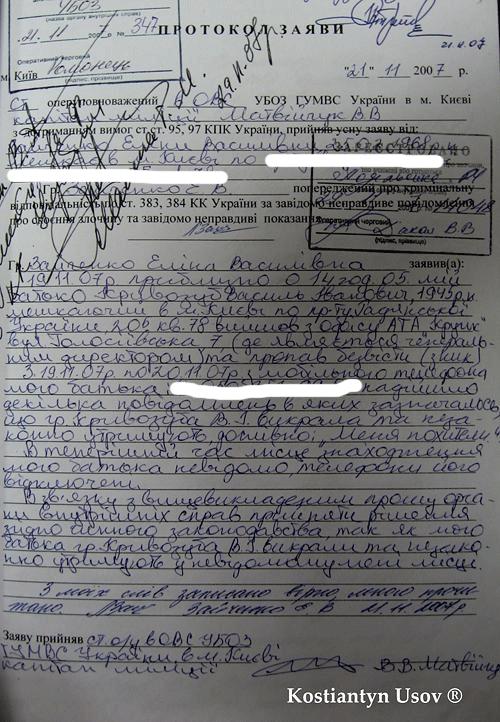 УБОЗ
(назва органу внутрішніх справ)
21. 11 2007 р. № 347
Оперативний черговий
(підпис, прізвище)
ПРОТОКОЛ ЗАЯВИ
21.11.07
м. Київ
"21" 11 2007 р.
Ст. оперуповноважений в ОВС УБОЗ ГУМВС України в м. Києві
капітан міліції Матвійчук В.В
з дотриманням вимог ст.ст. 95, 97 КПК України, прийняв усну заяву від:
Еліни Василівни
в м. Києві по
ЗАРЕЄСТРОВАНО
попереджені про кримінальну
відповідальність ст. 383, 384 КК України за завідомо неправдиве повідомлення
про скоєння злочину та завідомо неправдиві показання
(підпис, прізвище)
Гр. Зайченко Еліна Василівна заявив(а):
19.11.07р приблизно о 14 год. 05. мій
батько Кривозуб Василь Іванович, 1945р.н
мешкаючий в м. Києві по пр-ту Радянської
України 20б кв. 78 вийшов з офісу АТА „Крунк"
вул Голосіївська 7 (де являється генераль-
ним директором) та пропав безвісти (зник)
З 19.11.07р по 20.11.07р з мобільного телефона
мого батька надійшло
декілька повідомлень в яких зазначалось,
що гр. Кривозуба В.І викрали та неза-
конно утримують, дослівно: „Меня похитили".
В теперішній час місце знаходження
мого батька невідомо, телефони його
відключені.
В зв'язку з вищевикладеним прошу орга-
ни внутрішніх справ прийняти рішення
згідно діючого законодавства, так як мого
батька гр. Кривозуба В.І викрали та незако-
нно утримують у невідомому мені місці.
З моїх слів записано вірно, мною прочи-
тано. Зайченко Е В 21.11.2007р
Заяву прийняв ст о/у в ОВС УБОЗ
ГУМВС України в м. Києві
капітан міліції В.В. Матвійчук
Kostiantyn Usov ®